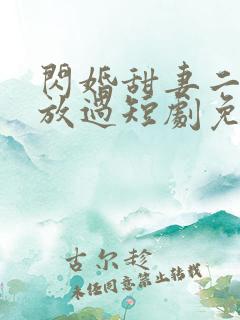 閃婚甜妻二
放過短劇免
古尔趁
未经同意禁止转载